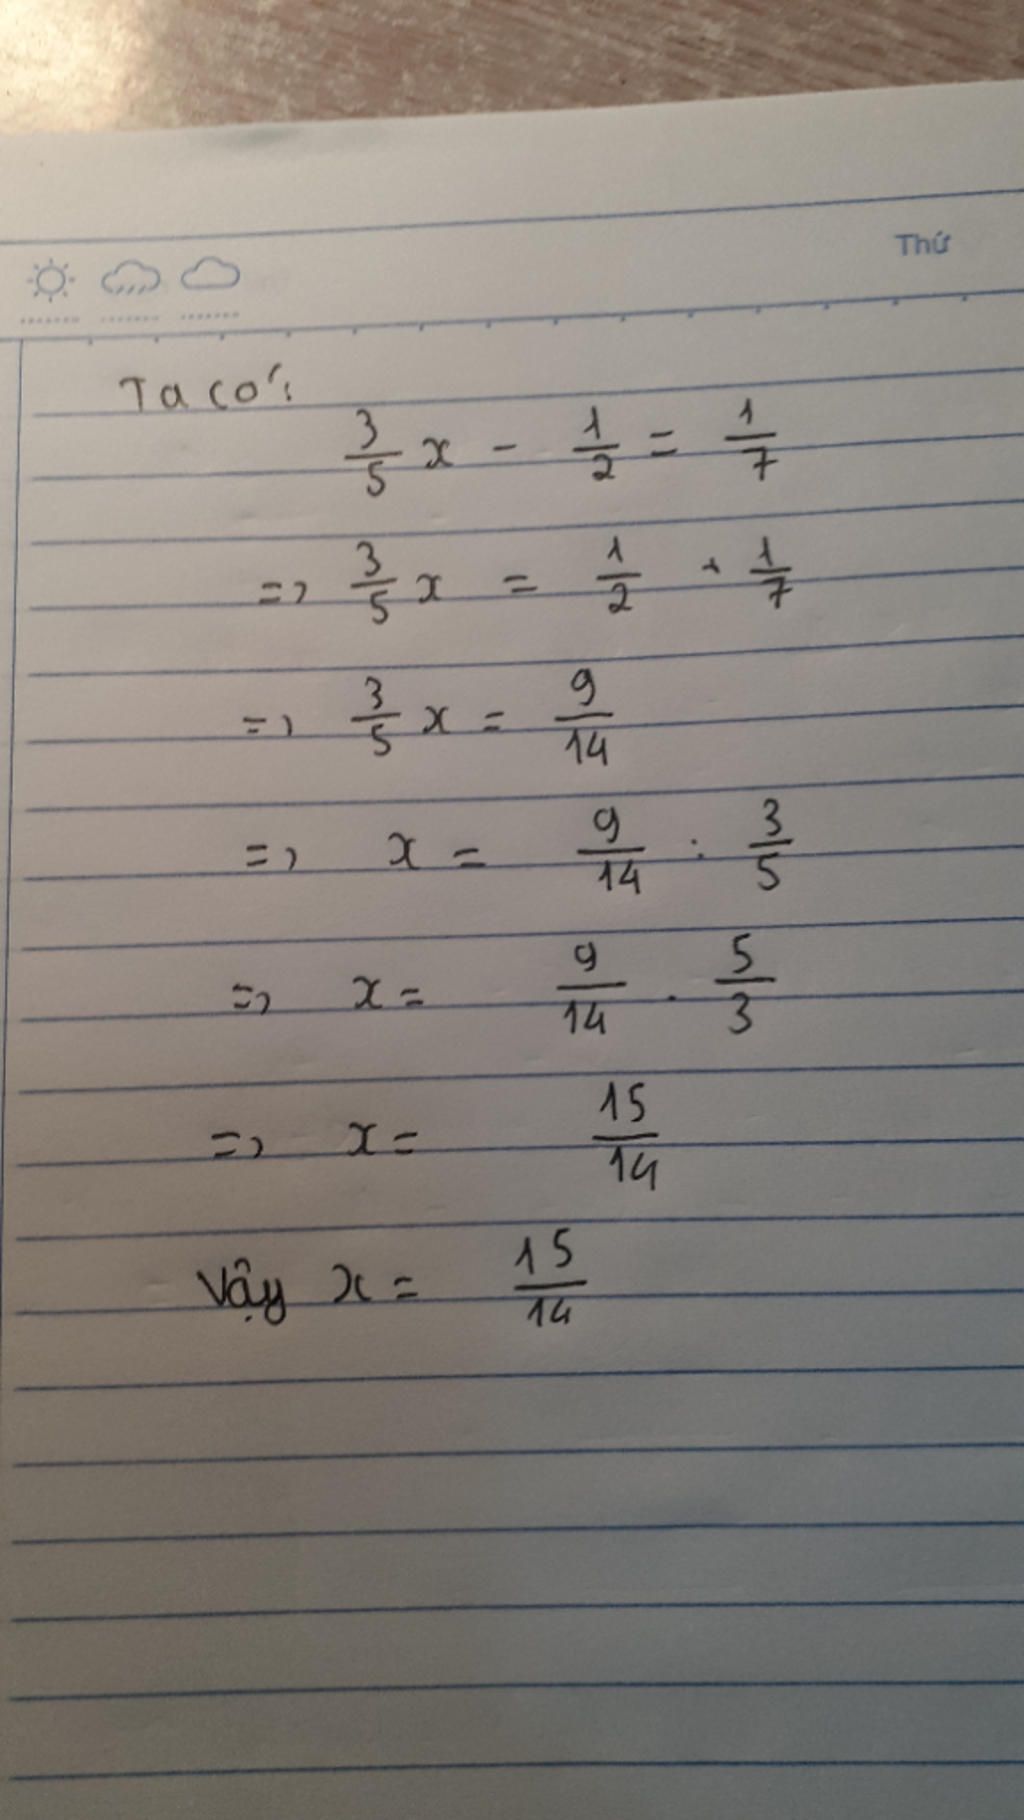 Thứ
Ta có:
3/5 x - 1/2 = 1/7
=> 3/5 x = 1/2 + 1/7
=> 3/5 x = 9/14
=> x = 9/14 : 3/5
=> x = 9/14 . 5/3
=> x = 15/14
Vậy x = 15/14